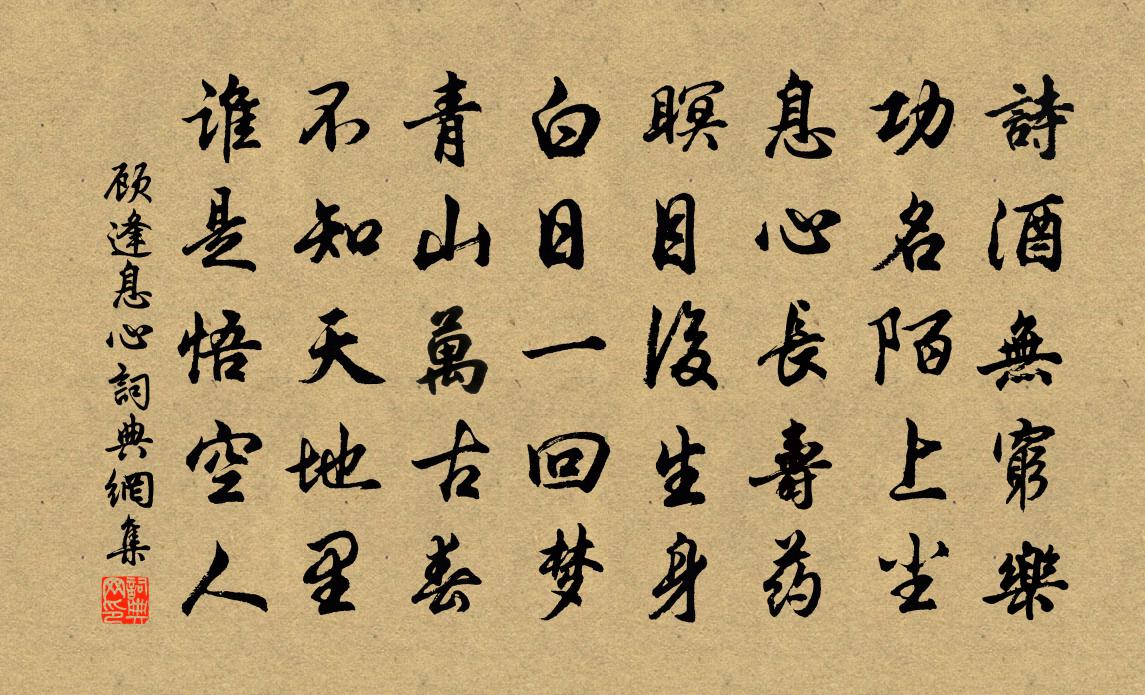 詩酒無窮樂
功名陌上尘
息心長壽药
瞑目後生身
白日一回梦
青山萬古春
不知天地里
谁是悟空人
顾逢息心詞典網集
詞典网印